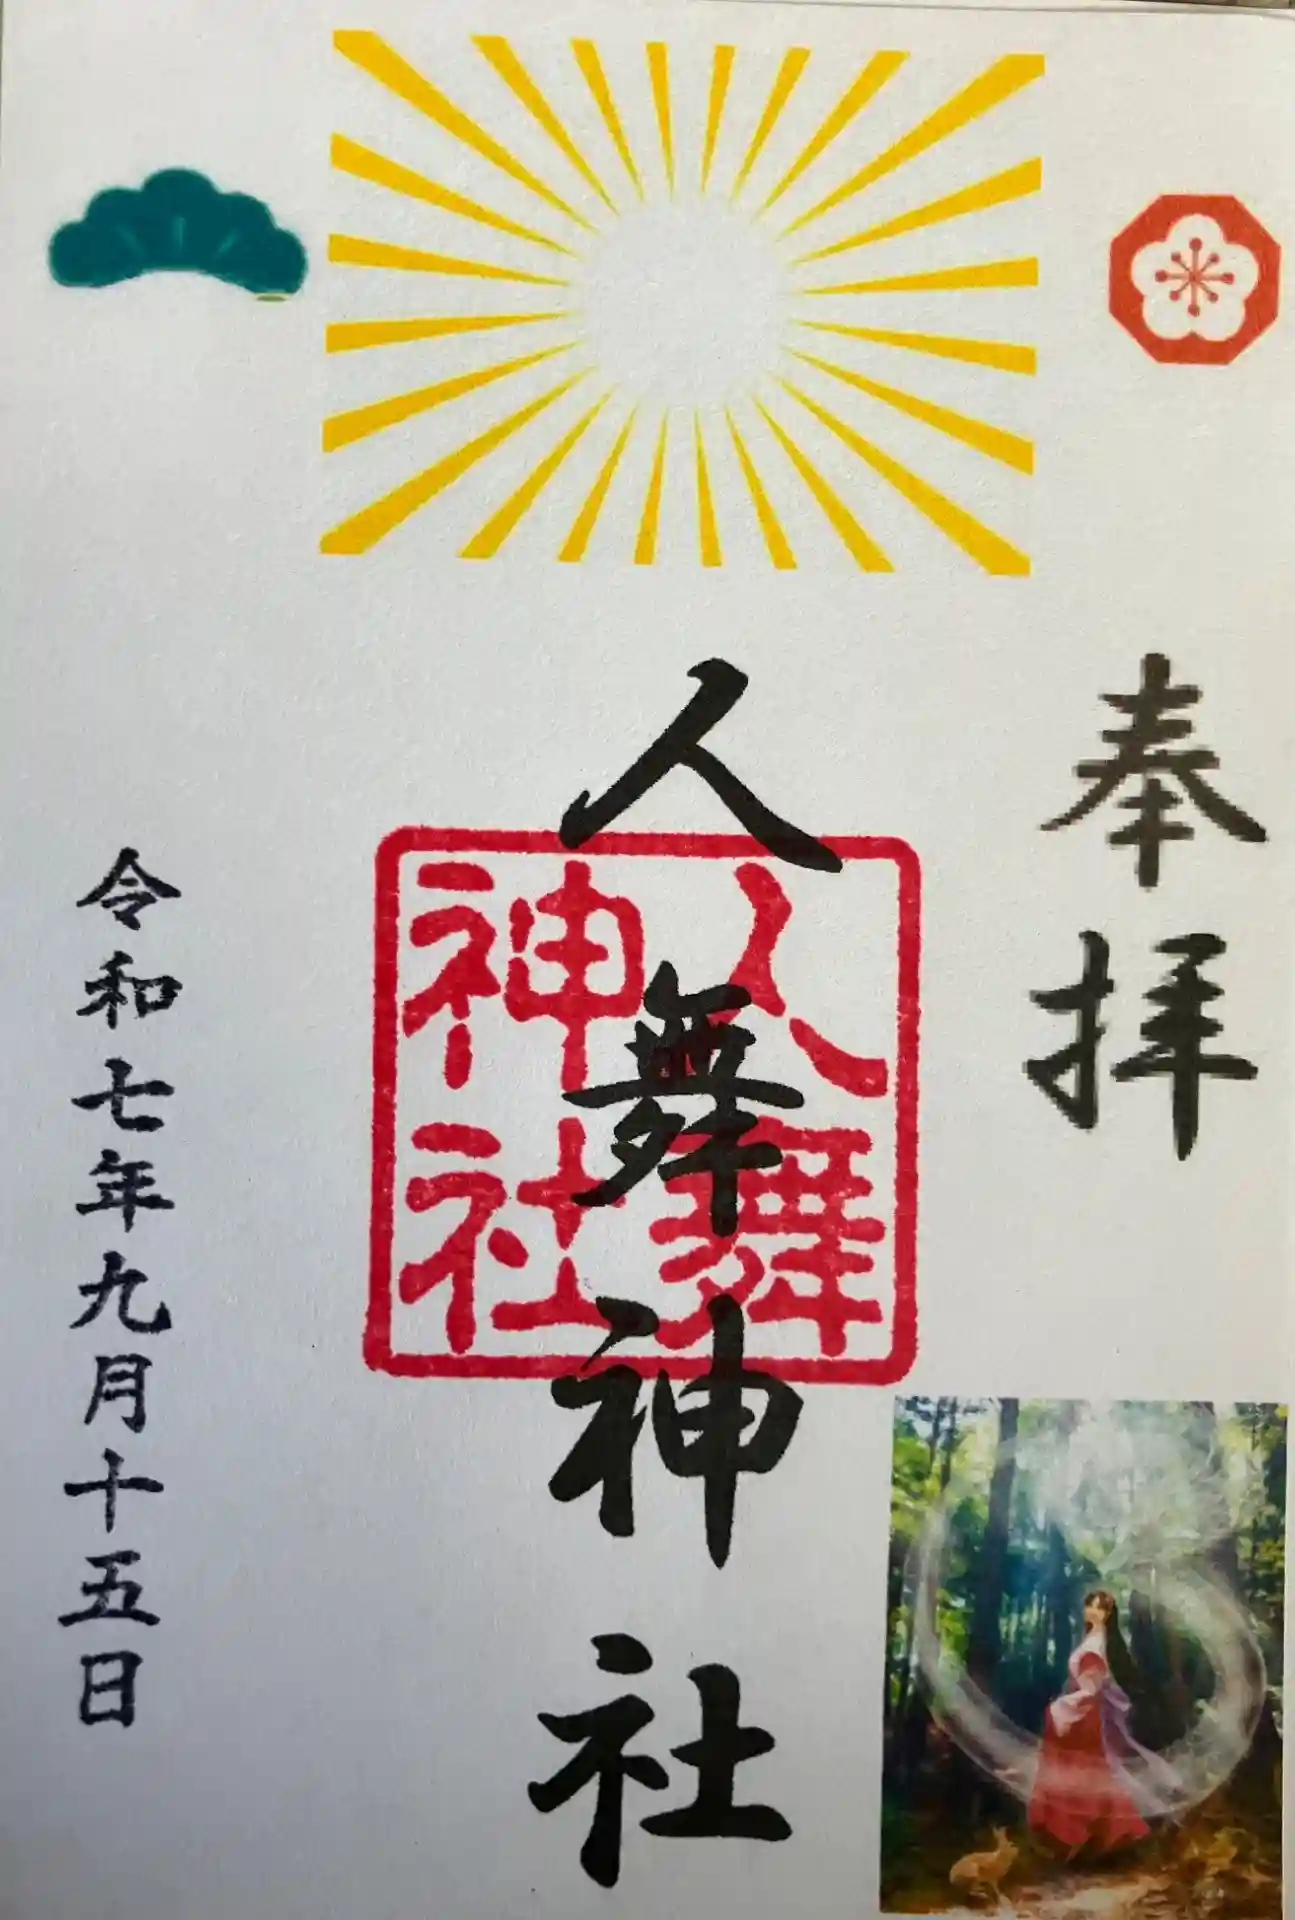 奉拝
人舞神社
人舞
神社
令和七年九月十五日